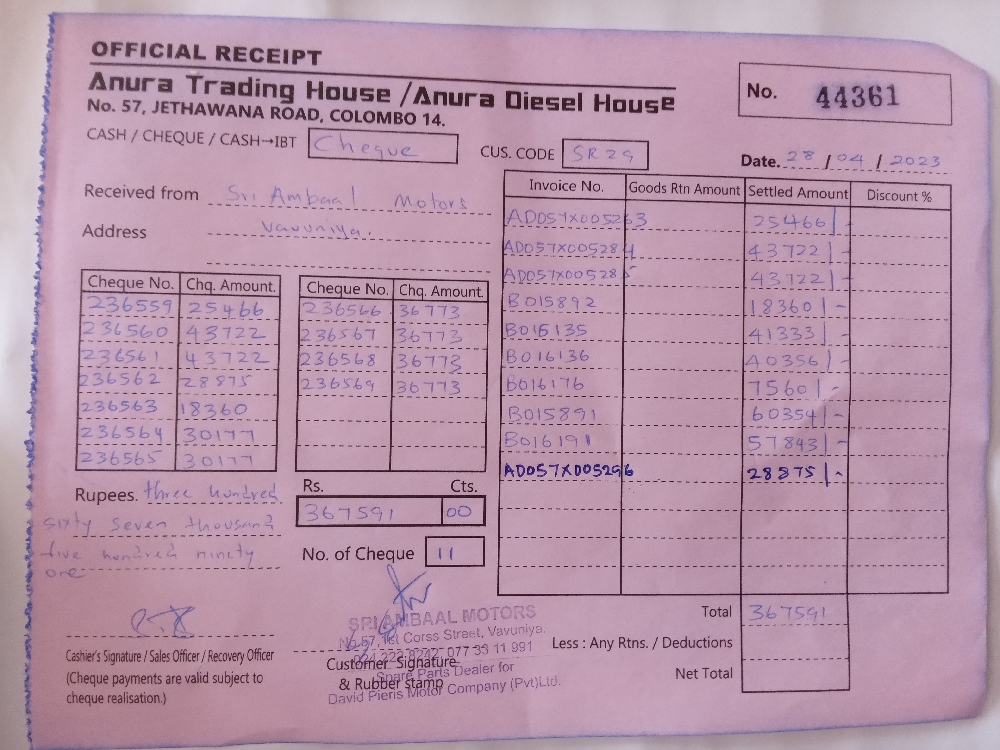 OFFICIAL RECEIPT
Anura Trading House /Anura Diesel House
No. 57, JETHAWANA ROAD, COLOMBO 14.
No. 44361
CASH / CHEQUE / CASH→IBT Cheque
CUS. CODE SR29
Date. 28 / 04 / 2023
Received from Sri Ambaal Motors
Address Vavuniya.
Cheque No. Chq. Amount.
236559 25466
236560 43722
236561 43722
236562 28875
236563 18360
236564 30177
236565 30177
Cheque No. Chq. Amount.
236566 36773
236567 36773
236568 36773
236569 36773
Rupees. three hundred
sixty seven thousand
five hundred ninety
one
Rs. Cts.
367591 00
No. of Cheque 11
Invoice No. Goods Rtn Amount Settled Amount Discount %
AD057X005263 25466/-
AD057X005284 43722/-
AD057X005285 43722/-
B015892 18360/-
B016135 41333/-
B016136 40356/-
B016176 7560/-
B015891 60354/-
B016191 57843/-
AD057X005296 28875/-
Total 367591
Less : Any Rtns. / Deductions
Net Total
Cashier's Signature / Sales Officer / Recovery Officer
(Cheque payments are valid subject to
cheque realisation.)
SRI AMBAAL MOTORS
No.67, 1st Corss Street, Vavuniya.
024 222 8242, 077 33 11 991
Spare Parts Dealer for
David Pieris Motor Company (Pvt)Ltd.
Customer Signature
& Rubber stamp